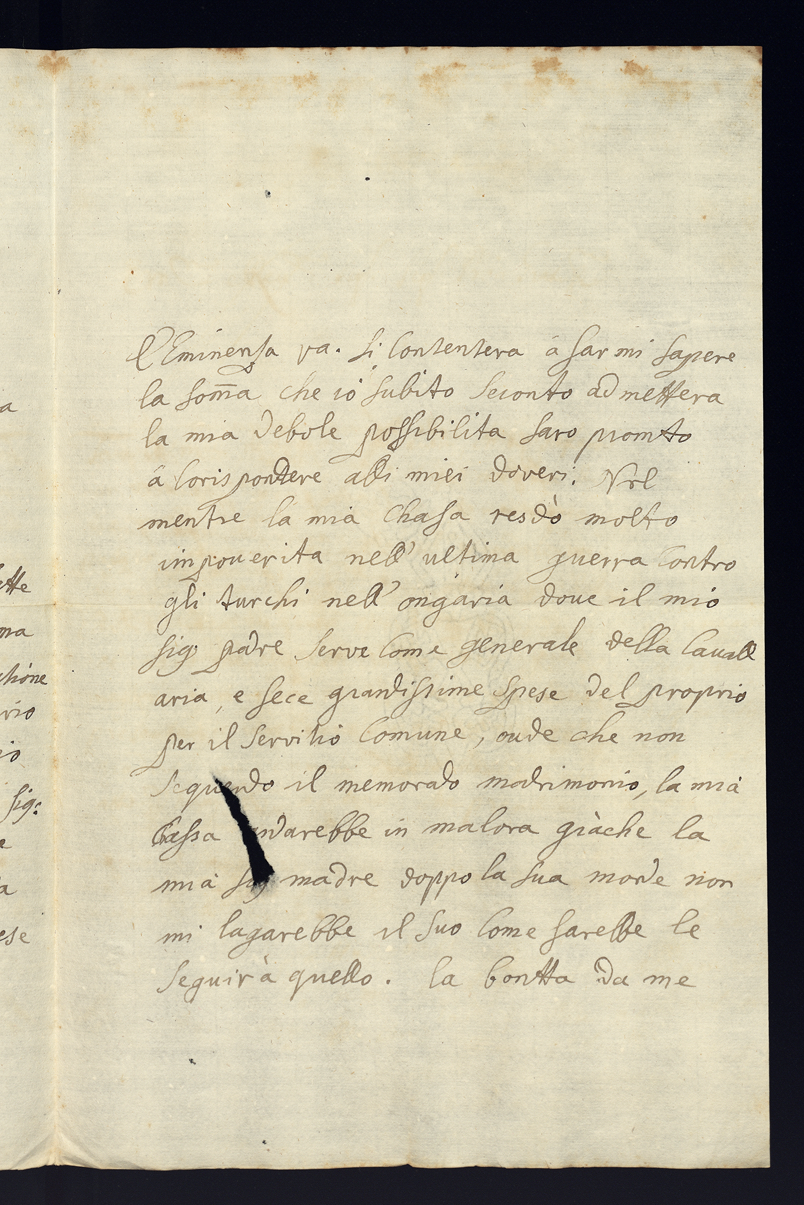 l'Eminenza va. si Contentera à far mi sapere
la som̃a che io subito seconto admettera
la mia debole possibilita saro promto
á Corispondere alli miei doveri. Nel
mentre la mia Chasa restò molto
impouerita nell' ultima guerra Contro
gli turchi nell' ongaria doue il mio
sigr padre serve Come generale della Cauall
aria, e fece grandissime spese del proprio
per il servitio Comune, onde che non
sequendo il memorato madrimonio, la mia
Cassa andarebbe in malora giàche la
mia sigr madre doppo la sua morte non
mi lagarebbe il suo Come farebbe se
seguirà quello. la bontta da me
a
ette
ma
ctione
rio
io
sigr
e
a
ese